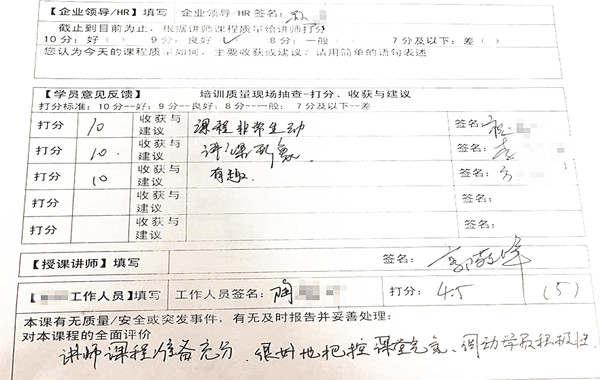 【企业领导/HR】填写 企业领导/HR 签名:
截止到目前为止,根据讲师课程质量给讲师打分
10分:好( ) 9分:良好(✓) 8分:一般( ) 7分及以下:差( )
您认为今天的课程质量如何,主要收获或建议?请用简单的语句表述
【学员意见反馈】 培训质量现场抽查--打分、收获与建议
打分标准:10分--好;9分--良好;8分--一般;7分及以下--差
打分 10 收获与建议 课程非常生动 签名:
打分 10. 收获与建议 讲课形象. 签名:
打分 10 收获与建议 有趣. 签名:
打分 收获与建议 签名:
打分 收获与建议 签名:
【授课讲师】填写 签名:
【 工作人员】填写 工作人员签名:陶 打分: 4.5 (5)
本课有无质量/安全或突发事件,有无及时报告并妥善处理:
对本课程的全面评价
讲师课程准备充分、很好地把控课堂气氛、调动学员积极性